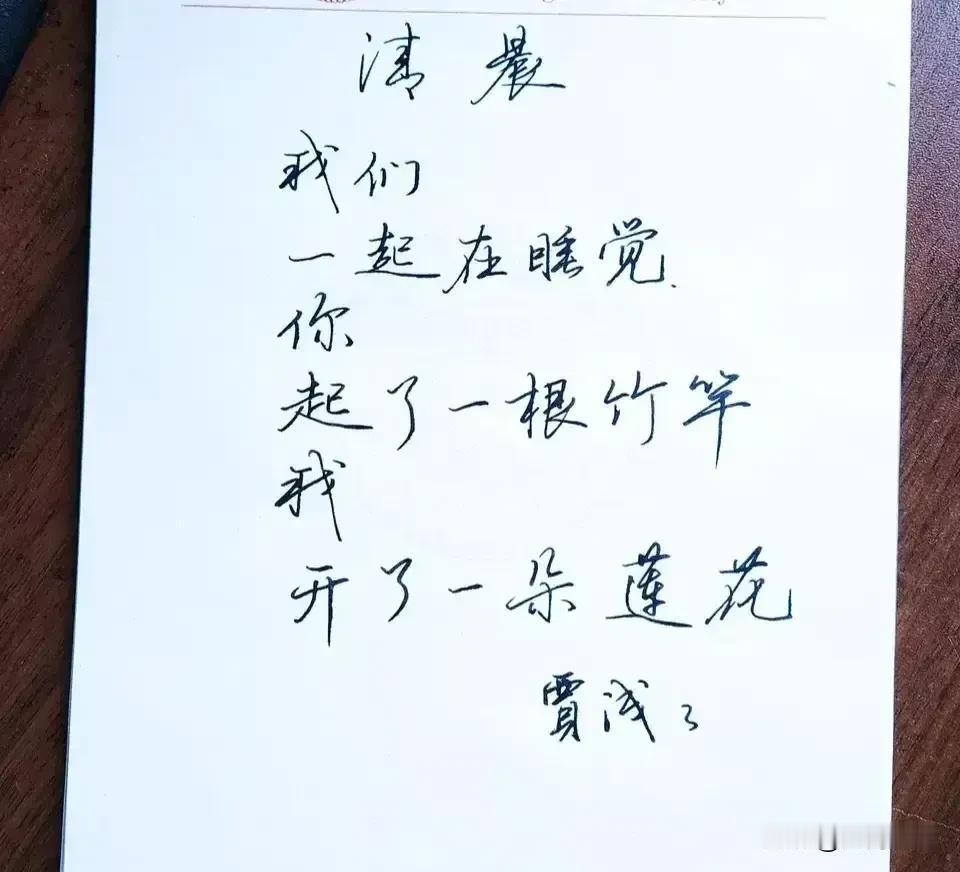 清晨
我们
一起在睡觉.
你
起了一根竹竿
我
开了一朵莲花
賈浅々